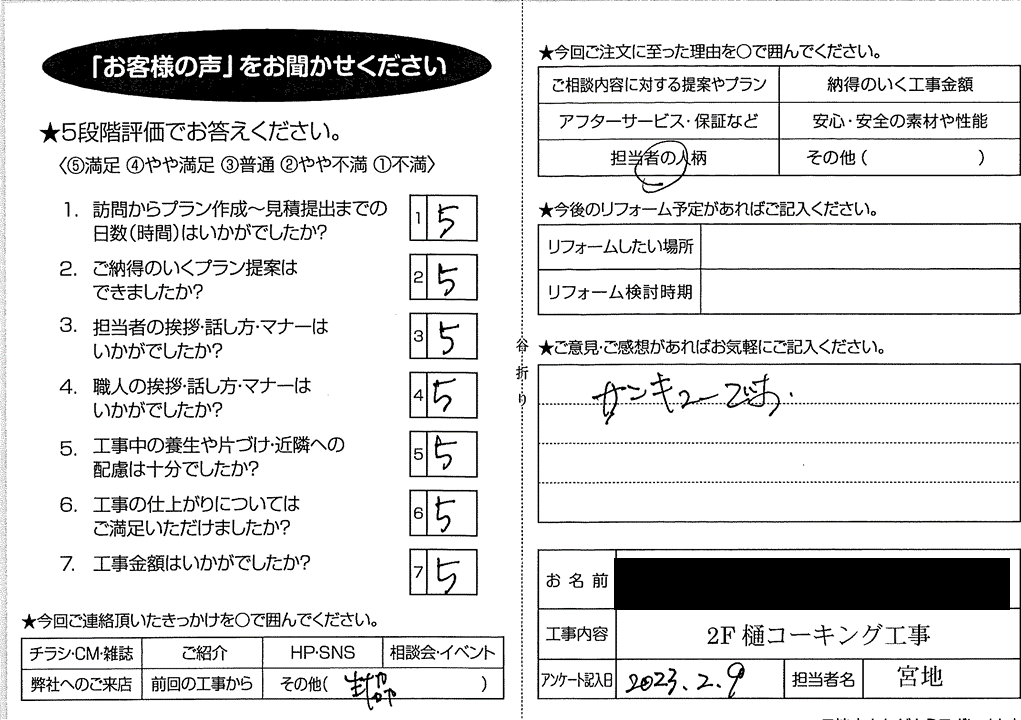 「お客様の声」をお聞かせください
★5段階評価でお答えください。
〈⑤満足 ④やや満足 ③普通 ②やや不満 ①不満〉
1. 訪問からプラン作成～見積提出までの
日数(時間)はいかがでしたか?
1 5
2. ご納得のいくプラン提案は
できましたか?
2 5
3. 担当者の挨拶・話し方・マナーは
いかがでしたか?
3 5
4. 職人の挨拶・話し方・マナーは
いかがでしたか?
4 5
5. 工事中の養生や片づけ・近隣への
配慮は十分でしたか?
5 5
6. 工事の仕上がりについては
ご満足いただけましたか?
6 5
7. 工事金額はいかがでしたか?
7 5
★今回ご連絡頂いたきっかけを○で囲んでください。
チラシ・CM・雑誌 ご紹介 HP・SNS 相談会・イベント
弊社へのご来店 前回の工事から その他( )
谷折り
★今回ご注文に至った理由を○で囲んでください。
ご相談内容に対する提案やプラン 納得のいく工事金額
アフターサービス・保証など 安心・安全の素材や性能
担当者の人柄 その他( )
★今後のリフォーム予定があればご記入ください。
リフォームしたい場所
リフォーム検討時期
★ご意見・ご感想があればお気軽にご記入ください。
サンキューです.
お名前
工事内容 2F 樋コーキング工事
アンケート記入日 2023.2.9 担当者名 宮地